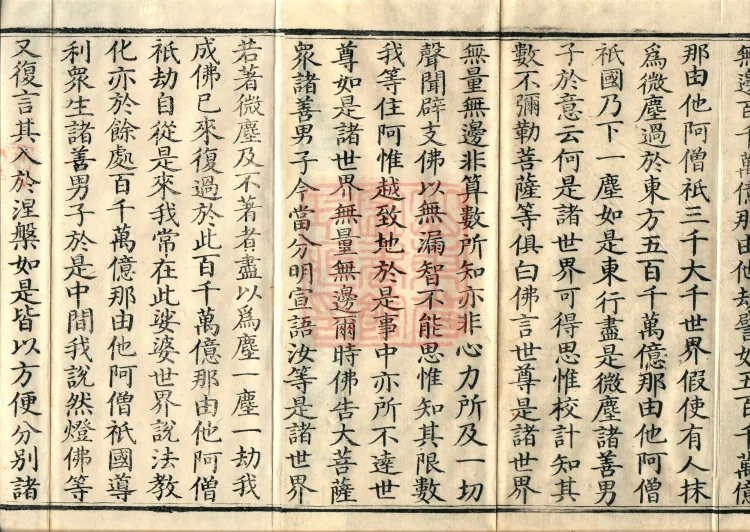 無邊百千萬億那由他劫譬如五百千萬億
那由他阿僧祇三千大千世界假使有人抹
爲微塵過於東方五百千萬億那由他阿僧
祇國乃下一塵如是東行盡是微塵諸善男
子於意云何是諸世界可得思惟校計知其
數不彌勒菩薩等俱白佛言世尊是諸世界
無量無邊非算數所知亦非心力所及一切
聲聞辟支佛以無漏智不能思惟知其限數
我等住阿惟越致地於是事中亦所不達世
尊如是諸世界無量無邊爾時佛告大菩薩
眾諸善男子今當分明宣語汝等是諸世界
若著微塵及不著者盡以爲塵一塵一劫我
成佛已來復過於此百千萬億那由他阿僧
祇劫自從是來我常在此娑婆世界說法教
化亦於餘處百千萬億那由他阿僧祇國導
利眾生諸善男子於是中間我說然燈佛等
又復言其入於涅槃如是皆以方便分別諸